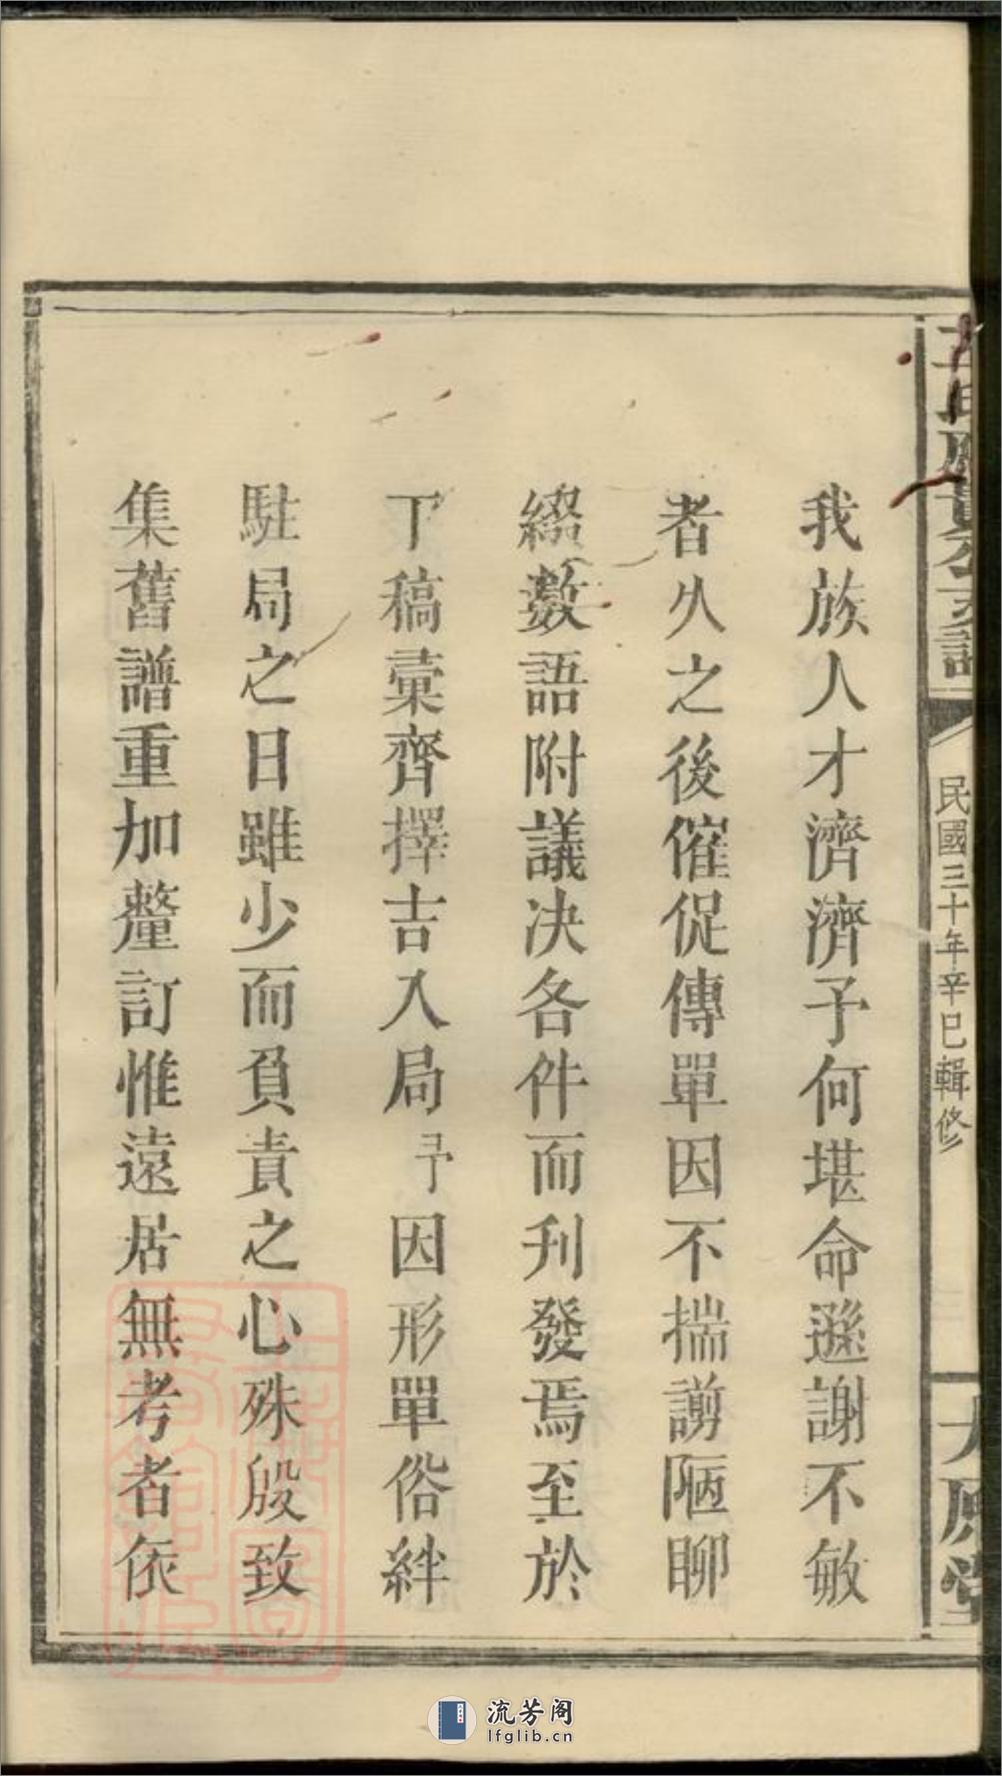 民國三十年辛巳輯修
我族人才濟濟予何堪命遜謝不敏
者久之後催促傳單因不揣謭陋聊
綴數語附議决各件而刋發焉至於
丁稿彚齊擇吉入局予因形單俗絆
駐局之日雖少而負責之心殊殷致
集舊譜重加釐訂惟遠居無考者依
流芳阁
lfglib.cn